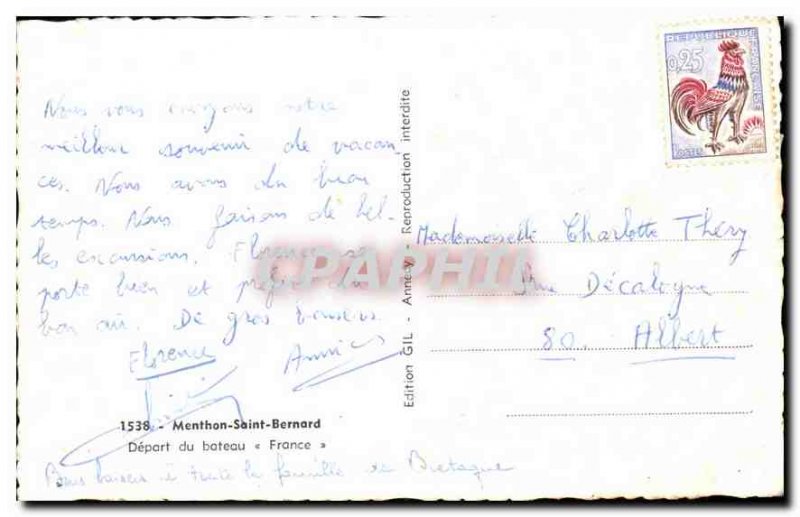 Nous vous envoyons notre
meilleur souvenir de vacan-
ces. Nous avons du beau
temps. Nous faisons de bel-
les excursions. Florence se
porte bien et profite du
bon air. De gros baisers.
Florence Annie
1538 - Menthon-Saint-Bernard
Départ du bateau « France »
Bons baisers à toute la famille de Bretagne
Edition GIL - Annecy - Reproduction interdite
REPUBLIQUE FRANÇAISE
0,25
Mademoiselle Charlotte Théry
Rue Décalogne
80. Albert
CPAPHIL